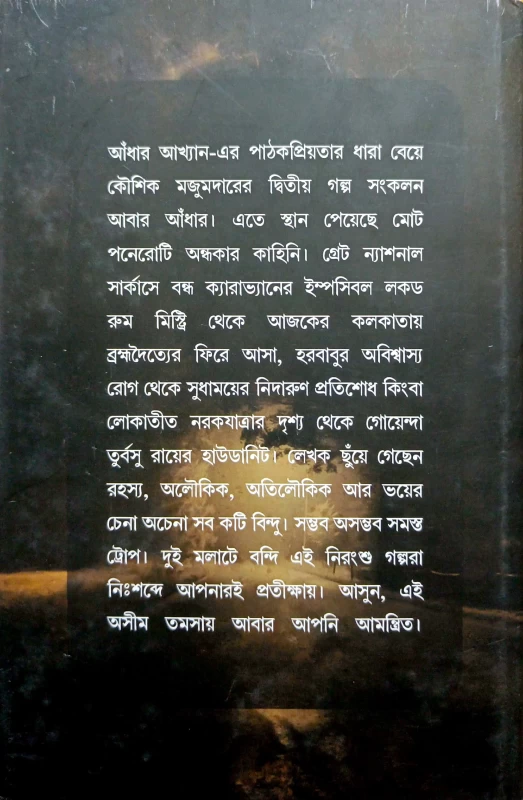 আঁধার আখ্যান-এর পাঠকপ্রিয়তার ধারা বেয়ে
কৌশিক মজুমদারের দ্বিতীয় গল্প সংকলন
আবার আঁধার। এতে স্থান পেয়েছে মোট
পনেরোটি অন্ধকার কাহিনি। গ্রেট ন্যাশনাল
সার্কাসে বন্ধ ক্যারাভ্যানের ইম্পসিবল লকড
রুম মিস্ট্রি থেকে আজকের কলকাতায়
ব্রহ্মদৈত্যের ফিরে আসা, হরবাবুর অবিশ্বাস্য
রোগ থেকে সুধাময়ের নিদারুণ প্রতিশোধ কিংবা
লোকাতীত নরকযাত্রার দৃশ্য থেকে গোয়েন্দা
তুর্বসু রায়ের হাউডানিট। লেখক ছুঁয়ে গেছেন
রহস্য, অলৌকিক, অতিলৌকিক আর ভয়ের
চেনা অচেনা সব কটি বিন্দু। সম্ভব অসম্ভব সমস্ত
ট্রোপ। দুই মলাটে বন্দি এই নিরংশু গল্পরা
নিঃশব্দে আপনারই প্রতীক্ষায়। আসুন, এই
অসীম তমসায় আবার আপনি আমন্ত্রিত।